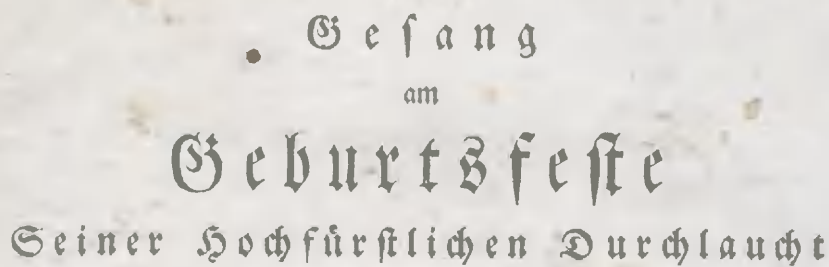 Geſang
am
Geburtsfeſte
Seiner Hochfürſtlichen Durchlaucht